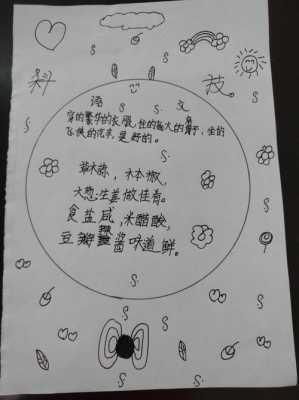 科 技
语 文
穿的繁华的衣服,住的高大的房子,坐的
飞快的汽车,是野的。
木本椒,
大葱生姜做佳肴。
食盐咸,米醋酸,
豆瓣酱味道鲜。